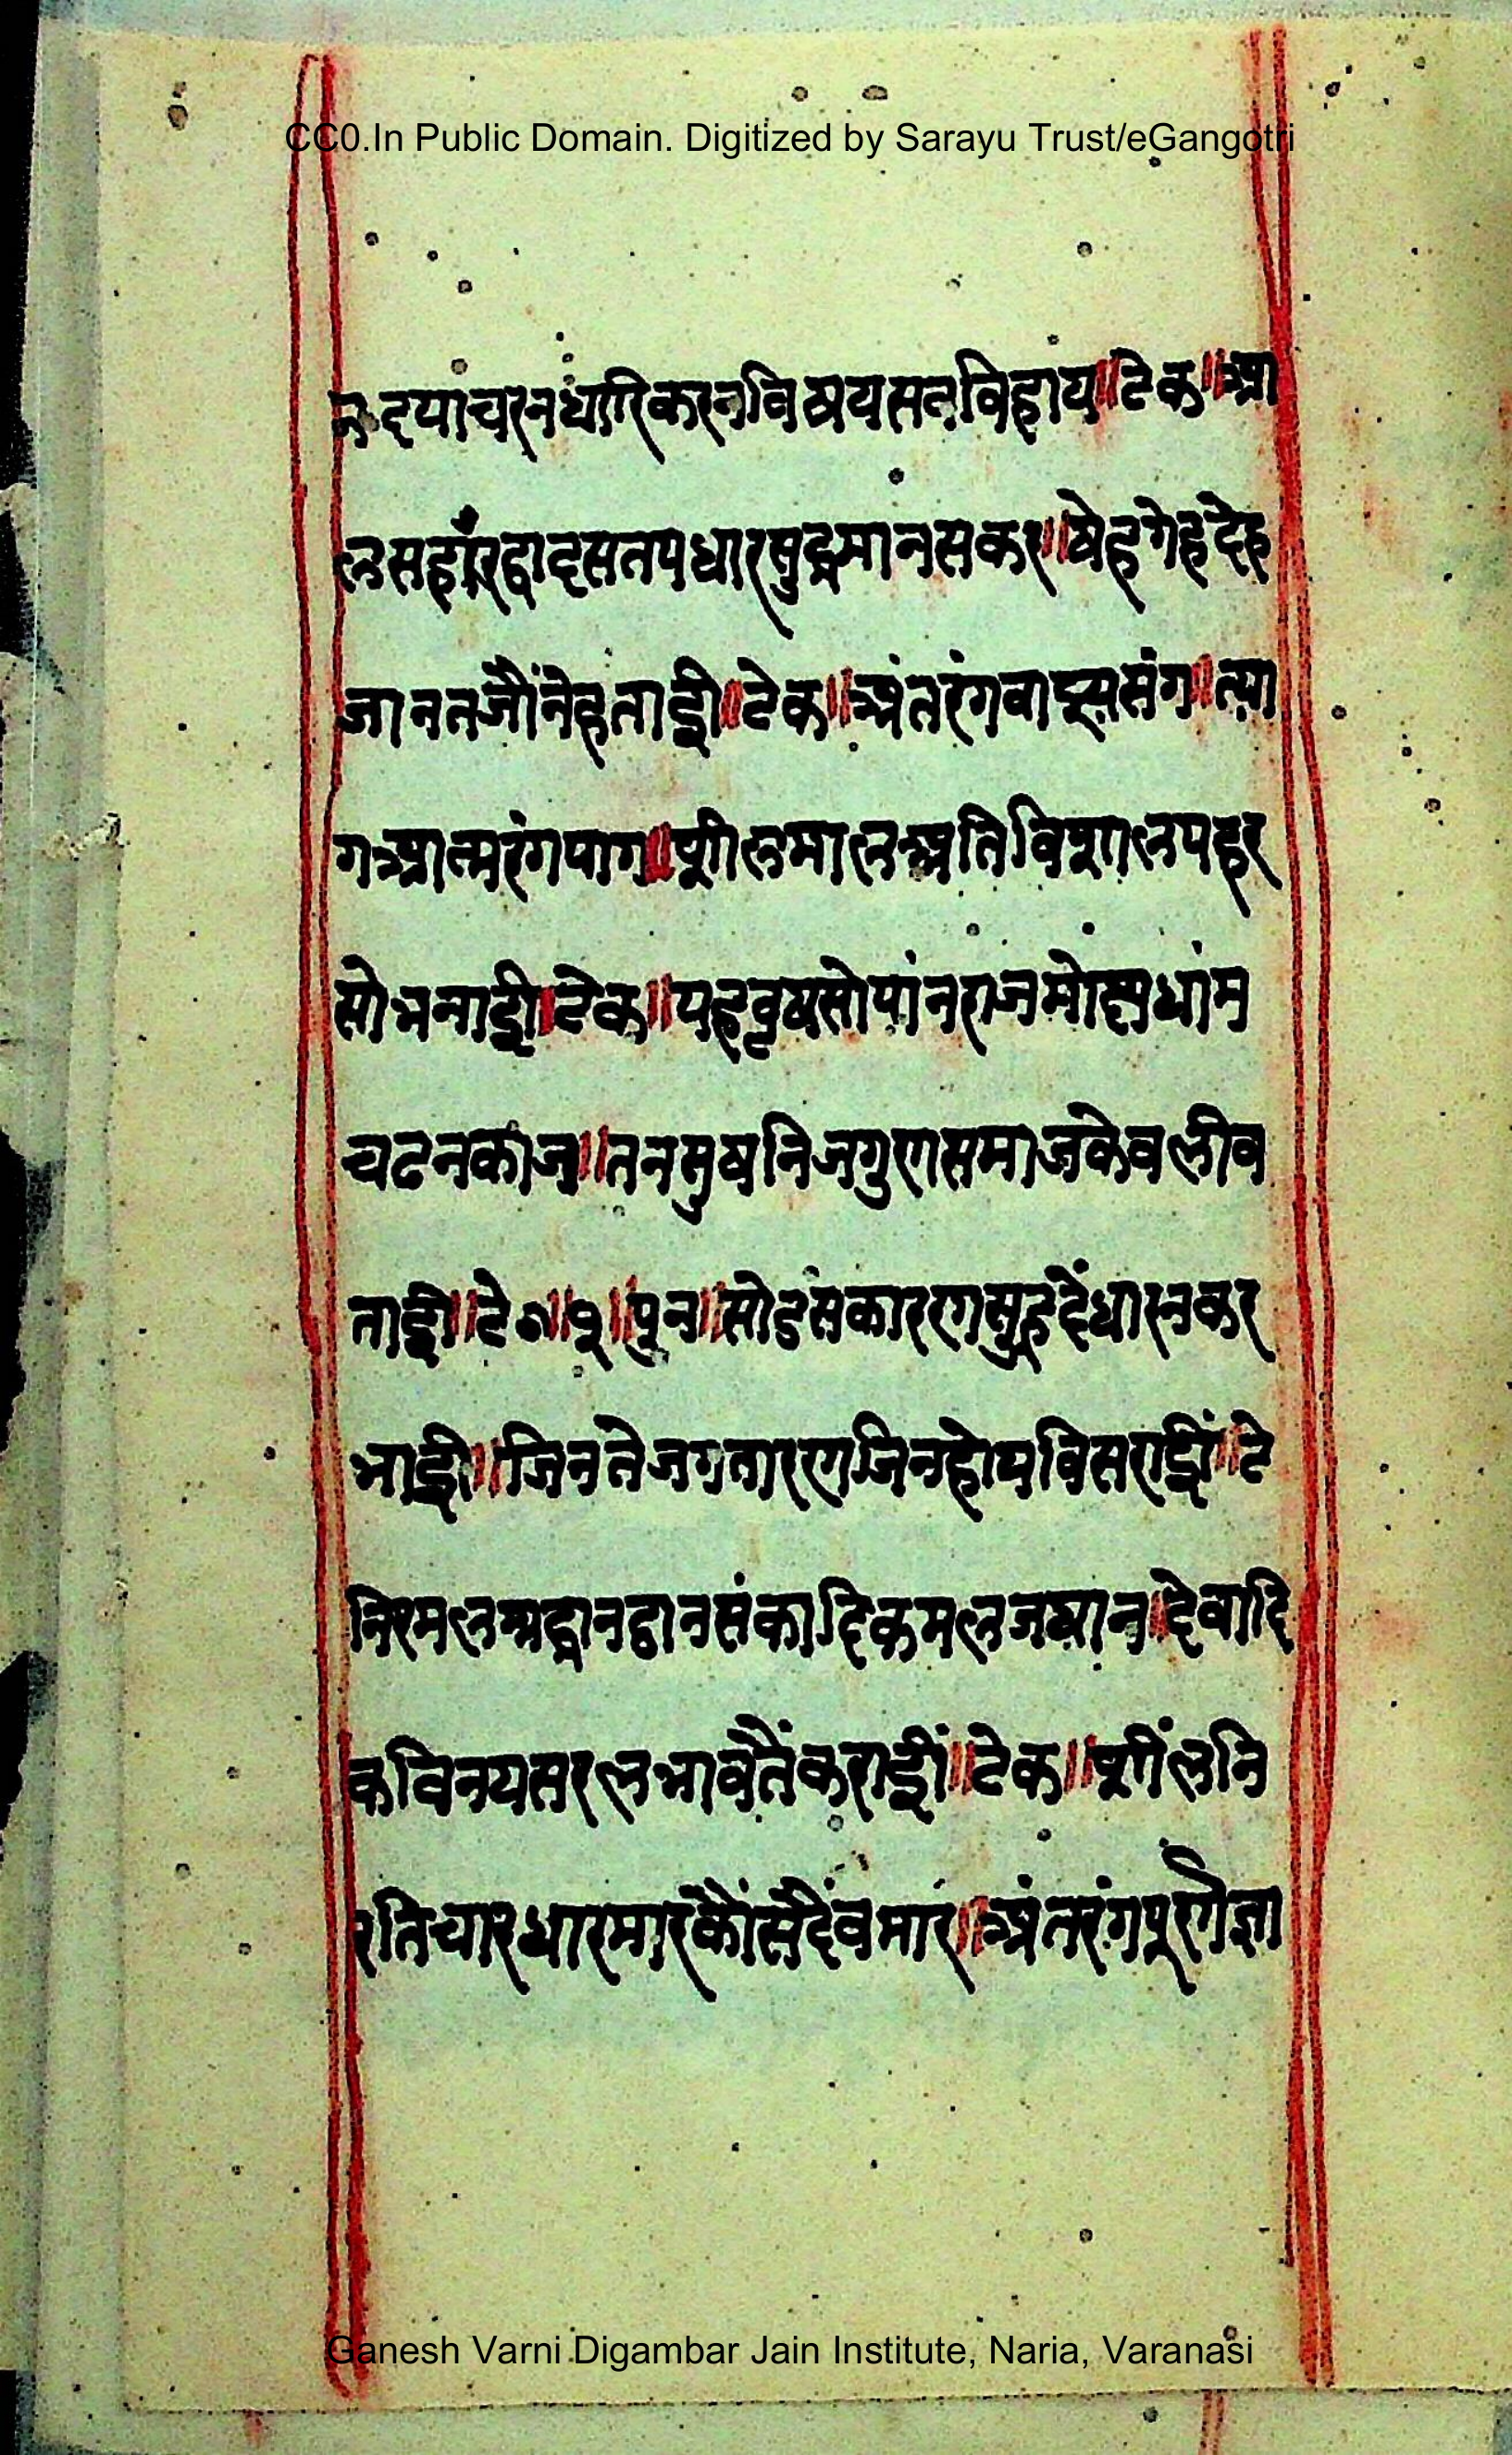 CC0.In Public Domain. Digitized by Sarayu Trust/eGangotri
दयाचरनधारिकरनविषयसतविहाय॥टेक॥आ
लसहाँरद्वादसतपधारसुद्धमानसकर॥षेहगेहदेह
जानतजौंनेहताई॥टेक॥अंतरंगवाह्यसंग॥त्या
गआत्मरंगपाग॥शीलमालअतिविशालपहर
सोभनाई॥टेक॥यहवृषसोपांनराजमोक्षधांम
चढनकाज॥तनसुषनिजगुणसमाजकेवलीव
ताई॥टे०॥१॥पुन॥सोडसकारणसुहृदैंधारनकर
भाई॥जिनतेजगतारणजिनहोयविसराईं॥टे
निरमलश्रद्धानठानसंकादिकमलजघान॥देवादि
कविनयसरलभावतैंकराईं॥टेक॥शींलनि
रतिचारधारमारकौंसदैंवमार॥अंतरंगपूरणज्ञा
Ganesh Varni Digambar Jain Institute, Naria, Varanasi